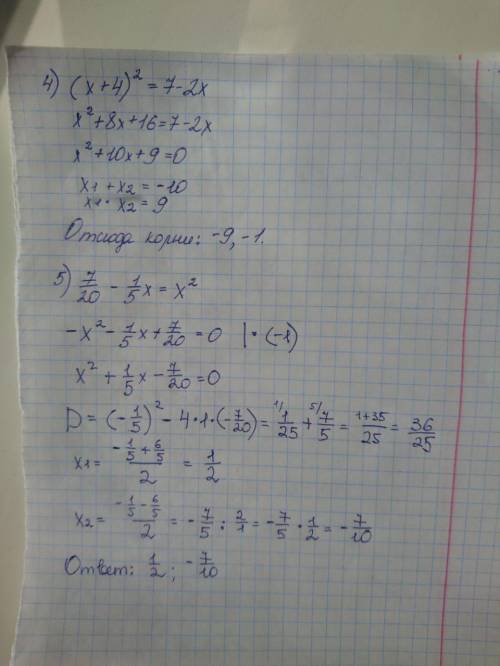 4) (x+4)² = 7-2x
x²+8x+16=7-2x
x²+10x+9=0
x₁+x₂=-10
x₁·x₂=9
Отсюда корни: -9, -1.
5) 7/20 - 1/5x = x²
-x² - 1/5x + 7/20 = 0 |·(-1)
x² + 1/5x - 7/20 = 0
D = (-1/5)² - 4·1·(-7/20) = ¹⁾1/25 + ⁵⁾7/5 = 1+35/25 = 36/25
x₁ = (-1/5 + 6/5)/2 = 1/2
x₂ = (-1/5 - 6/5)/2 = -7/5 : 2/1 = -7/5 · 1/2 = -7/10
Ответ: 1/2 ; -7/10